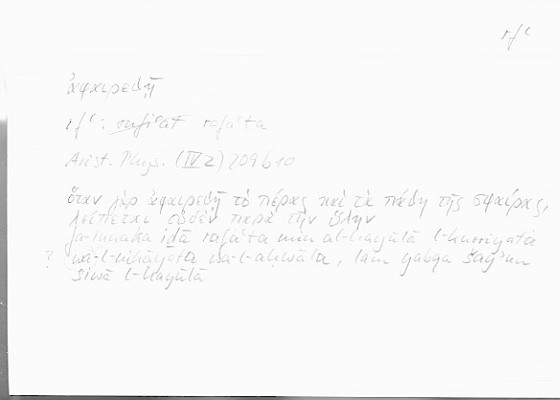 rfʿ
ἀφαιρεθῇ
rfʿ: rufiʿat rafaʿta
Arist. Phys. (IV 2) 209b10
ὅταν γὰρ ἀφαιρεθῇ τὸ πέρας καὶ τὰ πάθη τῆς σφαίρας,
λείπεται οὐδὲν παρὰ τὴν ὕλην
fa-innaka iḏā rafaʿta min al-hayūlā l-kurriyata
? wa-l-nihāyata wa-l-aḥwāla, lam yabqa šayʾun
siwā l-hayūlā